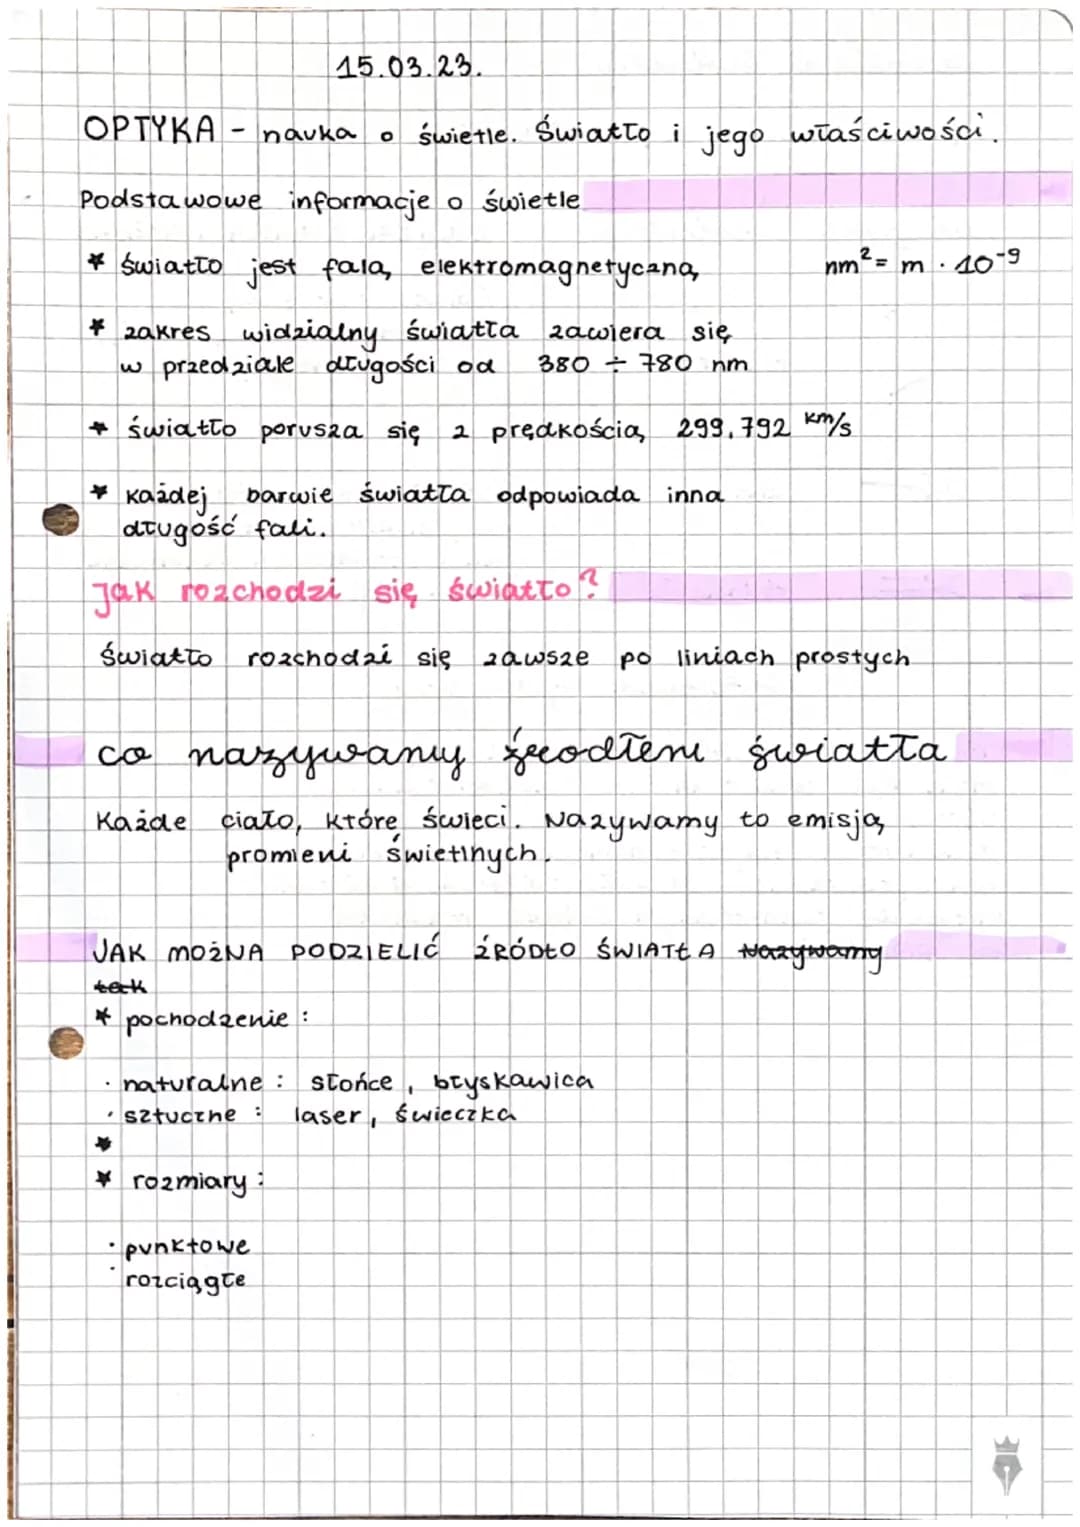 15.03.23.
OPTYKA - nauka o świetle. Światło i jego właściwości.
Podstawowe informacje o świetle
* światło jest falą elektromagnetyczną nm² = m · 10⁻⁹
* zakres widzialny światła zawiera się
w przedziale długości od 380 ÷ 780 nm
* światło porusza się z prędkością 299.792 km/s
* każdej barwie światła odpowiada inna
długość fali.
Jak rozchodzi się światło?
światło rozchodzi się zawsze po liniach prostych
co nazywamy źródłem światła
Każde ciało, które świeci. Nazywamy to emisją
promieni świetlnych.
JAK MOŻNA PODZIELIĆ ŹRÓDŁO ŚWIATŁA Nazywamy
tak
* pochodzenie :
· naturalne : słońce, błyskawica
· sztuczne : laser, świeczka
*
* rozmiary :
· punktowe
· rozciągłe